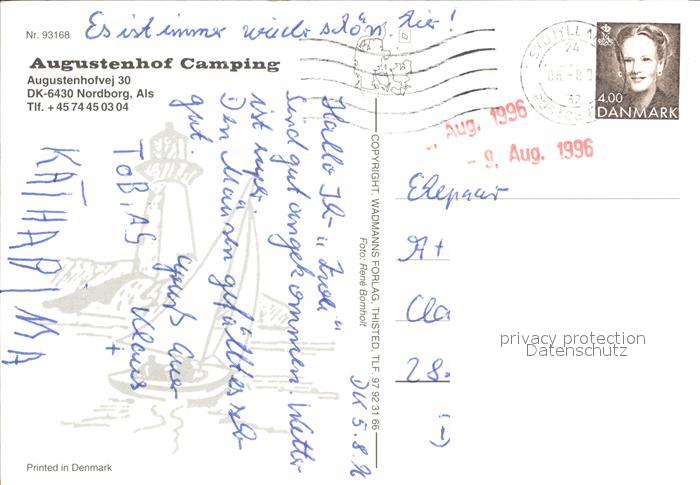 Es ist immer wieder schön hier!
Nr. 93168
Augustenhof Camping
Augustenhofvej 30
DK-6430 Nordborg, Als
Tlf. + 45 74 45 03 04
DK 5.8.96
Hallo Ihr
Sind gut angekommen. Wetter
ist super.
Den Mäusen gefällt es sehr
gut.
Euer
Klaus
+
TOBiAS
KATHARINA
Printed in Denmark
COPYRIGHT, WADMANNS FORLAG, THISTED, TLF. 97 92 31 66
Foto: René Bornholt
24
4.00
DANMARK
Aug. 1996
- 9. Aug. 1996
Ehepaar
28
privacy protection
Datenschutz